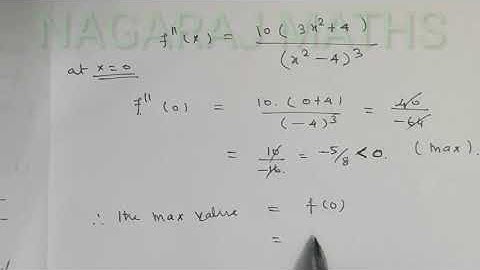 NAGARAJ MATHS
f''(x) = 10(3x²+4) / (x²-4)³
at x=0
f''(0) = 10.(0+4) / (-4)³ = 40 / -64
= 10 / -16 = -5/8 < 0. (max).
∴ the max value = f(0)
=